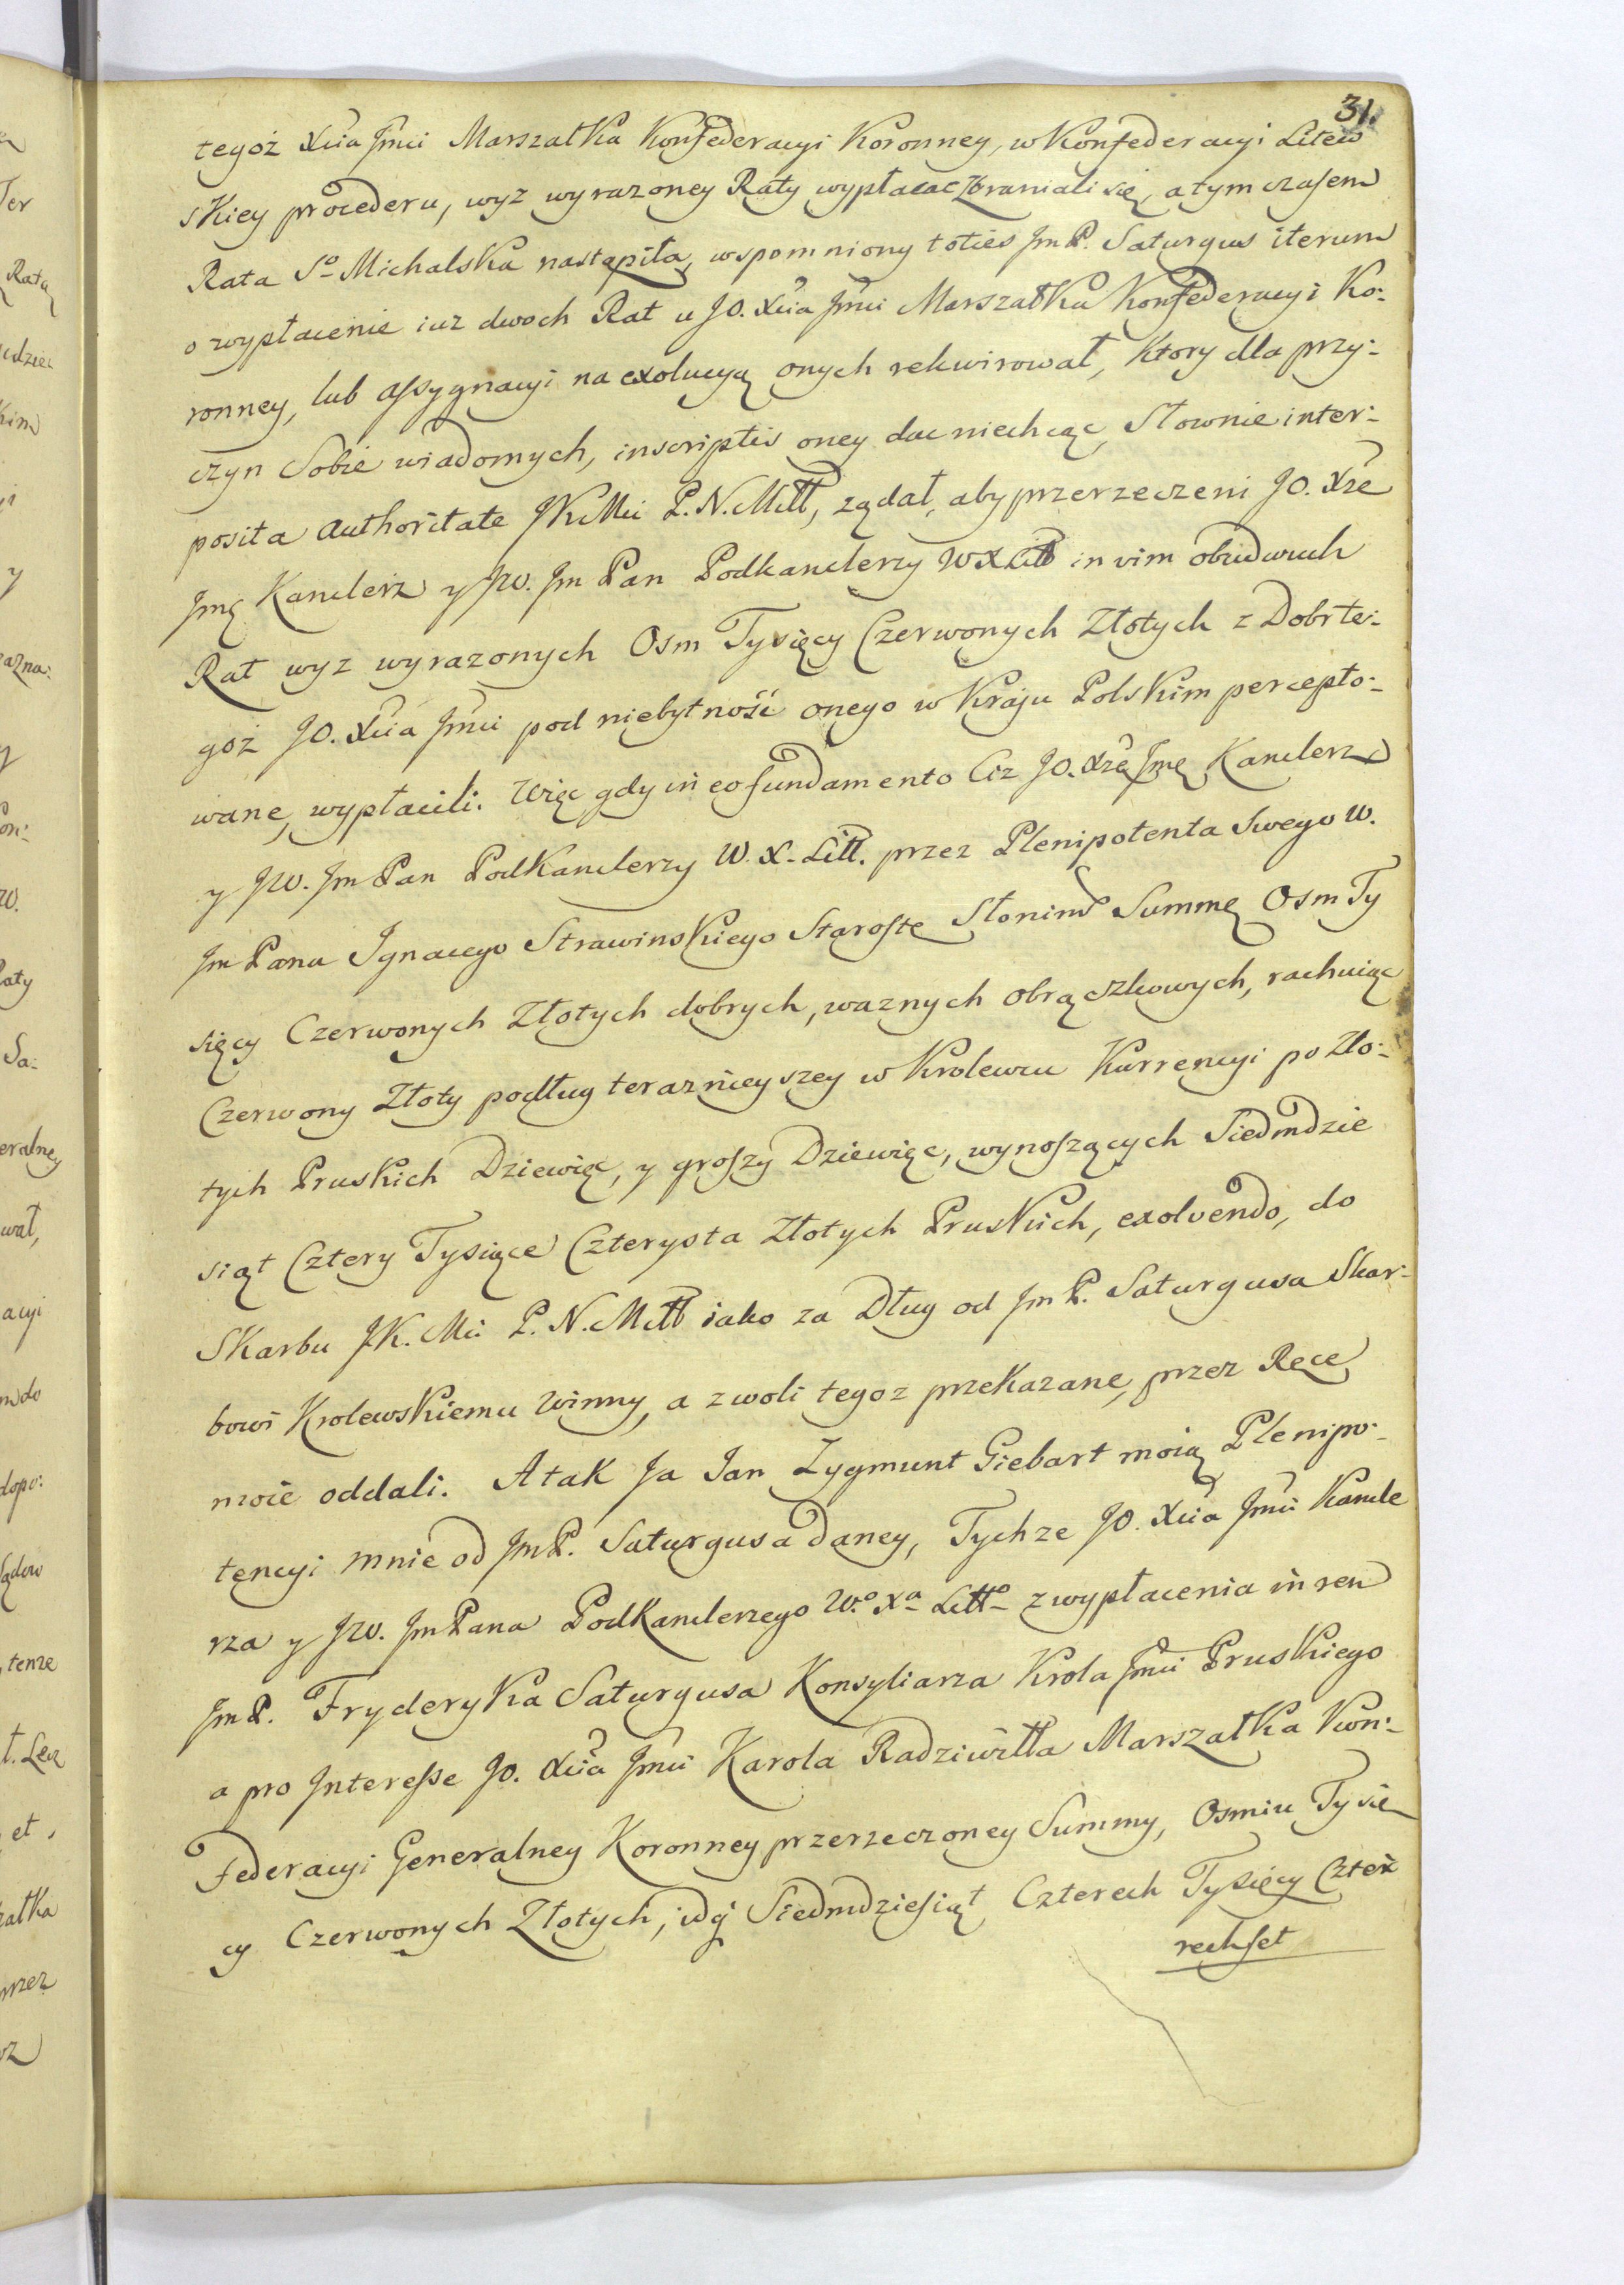 31.
tegoż Xcia Jmci Marszałka Konfederacyi Koronney, w Konfederacyi Litew
skiey procederu, wyz wyrazoney Raty wypłacac zbraniali się, a tym czasem
Rata So Michalska nastąpiła, wspomniony toties Jm P. Saturgus iterum
o wypłacenie iuz dwoch Rat u JO. Xcia Jmci Marszałka Konfederacyi Ko:
ronney, lub assygnacyi na exolucyą onych rekwirował, ktory dla przy:
czyn Sobie wiadomych, inscriptis oney dac niechcąc, Słownie inter:
posita authoritate JKMci P. N. Mił, ządał, aby przerzeczeni JO. Xże
Jmć Kanclerz y JW. Jm Pan Podkanclerzy WXLitt in vim obudwuch
Rat wyz wyrazonych Osm Tysięcy Czerwonych Złotych z Dobr te:
goż JO. Xcia Jmci pod niebytność onego w Kraju Polskim percepto:
wane, wypłacili. Więc gdy in eo fundamento Ciz JO. Xżę Jmę Kanclerz
y JW. Jm Pan Podkanclerzy W. X. Litt. przez Plenipotenta Swego W.
Jm Pana Ignacego Strawinskiego Starostę Słonim Summę Osm Ty
sięcy Czerwonych Złotych dobrych, waznych obrączkowych, rachuiąc
Czerwony Złoty podług teraznieyszey w Krolewcu Kurrencyi po Zło:
tych Pruskich Dziewięc, y groszy Dziewięc, wynoszących Siedmdzie
siąt Cztery Tysiące Czterysta Złotych Pruskich, exolvendo, do
Skarbu J.K. Mci P. N. Mił iako za Dług od Jm P. Saturgusa Skar:
bowi Krolewskiemu winny, a z woli tegoz przekazane, przez Ręce
moie oddali. A tak Ja Jan Zygmunt Giebart moią Plenipo:
tencyi mnie od Jm P. Saturgusa daney, Tychze JO. Xcia Jmci Kancle
rza y JW. Jm Pana Podkanclerzego W.o Xa Litto z wypłacenia in rem
Jm P. Fryderyka Saturgusa Konsyliarza Krola Jmci Pruskiego
a pro Interesse JO. Xcia Jmci Karola Radziwiłła Marszałka Kon:
federacyi Generalney Koronney przerzeczoney Summy, Osmiu Tysię
cy Czerwonych Złotych, idq Siedmdziesiąt Czterech Tysięcy Czte
rechset